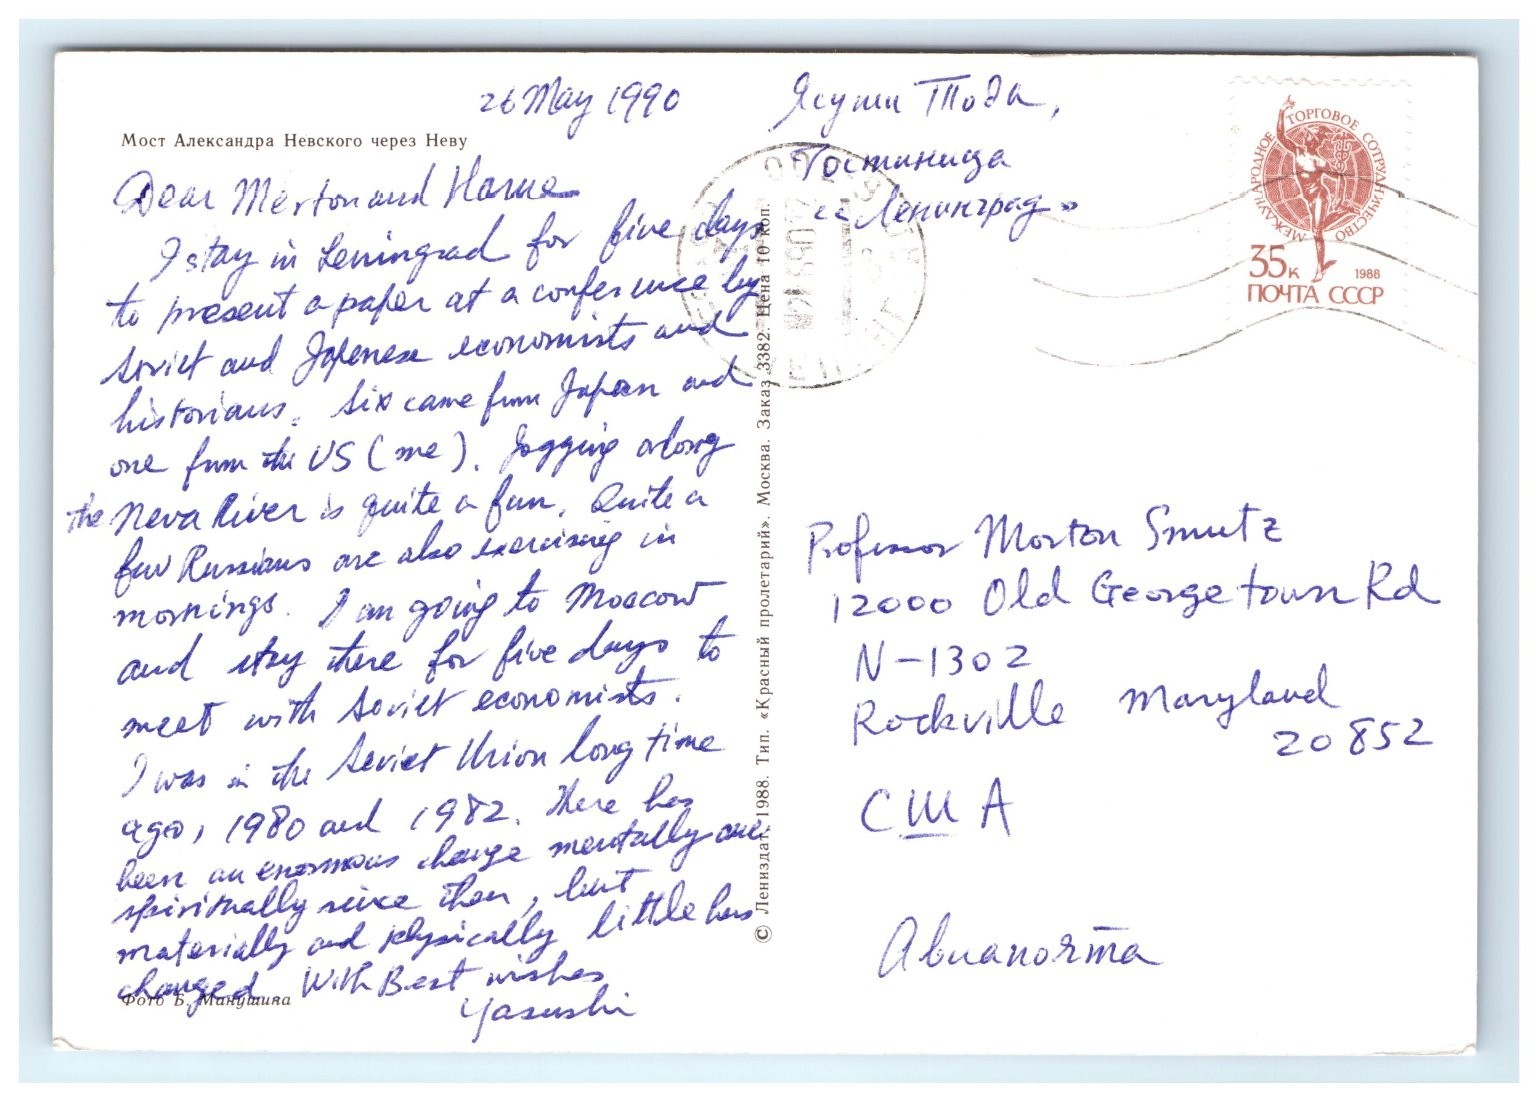 26 May 1990
Мост Александра Невского через Неву
Dear Morton and
I stay in Leningrad for five days
to present a paper at a conference by
Soviet and Japanese economists and
historians. Six came from Japan and
one from the US (me). Jogging along
the Neva River is quite a fun. Quite a
few Russians are also exercising in
mornings. I am going to Moscow
and stay there for five days to
meet with Soviet economists.
I was in the Soviet Union long time
ago, 1980 and 1982. There has
been an enormous change mentally and
spiritually since then, but
materially and physically little has
changed With Best wishes
Yasushi
Фото Б. Манушина
© Лениздат. 1988. Тип. «Красный пролетарий». Москва. Заказ 3382. Цена 10 коп.
Ясуши Тода,
Гостиница
«Ленинград»
МЕЖДУНАРОДНОЕ ТОРГОВОЕ СОТРУДНИЧЕСТВО
35к 1988
ПОЧТА СССР
Professor Morton Smutz
12000 Old Georgetown Rd
N-1302
Rockville Maryland
20852
США
Авиапочта